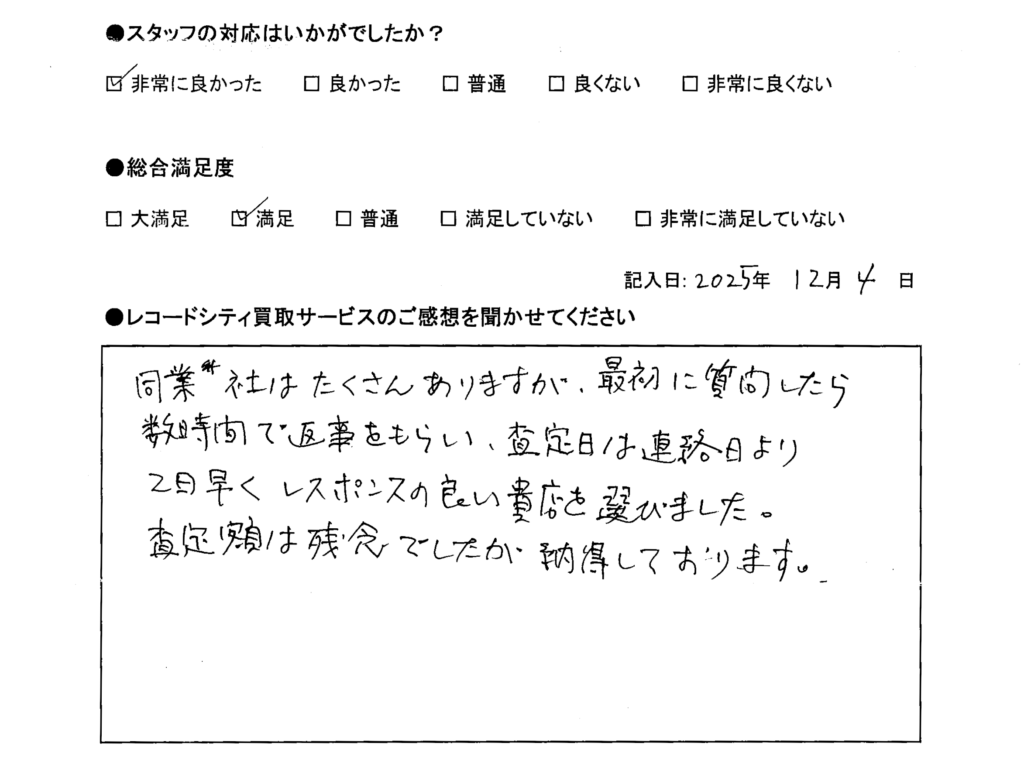 ●スタッフの対応はいかがでしたか？
☑ 非常に良かった □ 良かった □ 普通 □ 良くない □ 非常に良くない
●総合満足度
□ 大満足 ☑ 満足 □ 普通 □ 満足していない □ 非常に満足していない
記入日: 2025年 12月 4 日
●レコードシティ買取サービスのご感想を聞かせてください
同業 社はたくさんありますが、最初に質問したら
数時間で返事をもらい、査定日は連絡日より
2日早く レスポンスの良い貴店を選びました。
査定額は残念でしたが納得しております。